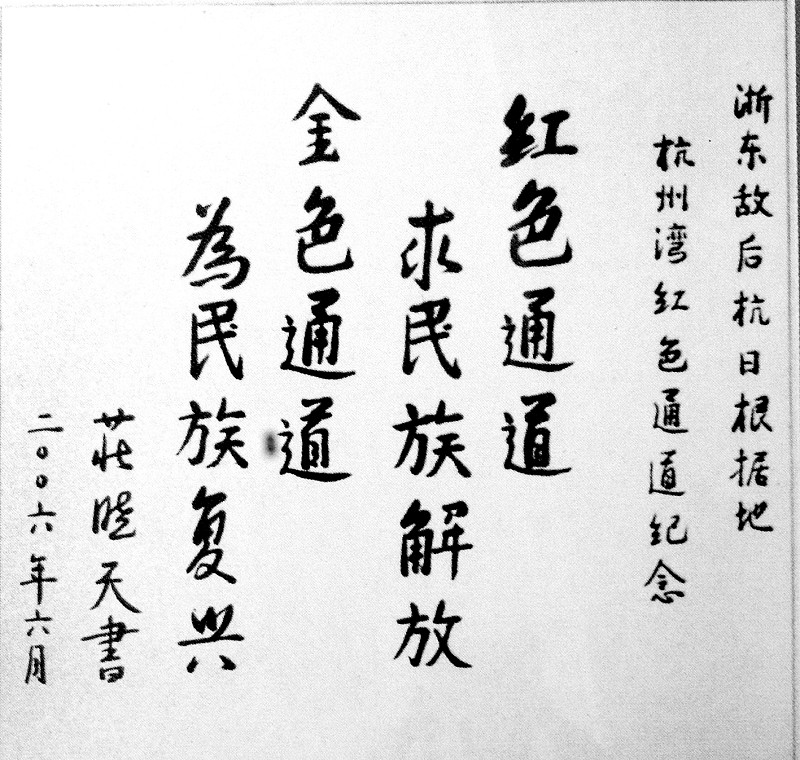 浙东敌后杭日根据地
杭州湾红色通道纪念
红色通道
求民族解放
金色通道
為民族复兴
二〇〇六年六月